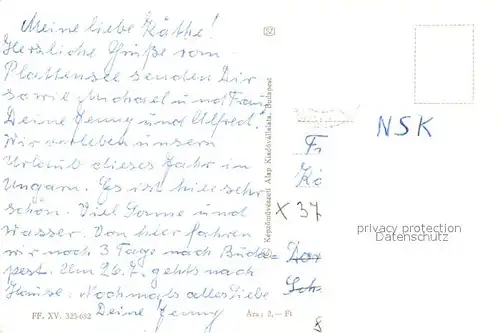 Meine liebe Käthe!
Herzliche Grüße vom
Plattensee senden Dir
sowie Michael und Frau,
Deine Jenny und Alfred.
Wir verleben unsern
Urlaub dieses Jahr in
Ungarn. Es ist hier sehr
schön. Viel Sonne und
Wasser. Von hier fahren
wir noch 3 Tage nach Buda=
pest. Am 26.7. gehts nach
Hause. Nochmals alles Liebe
Deine Jenny
FF. XV. 325-682
Ára: 2,— Ft
Képzőművészeti Alap Kiadóvállalata, Budapest
NSK
Fr
Kä
X 37
privacy protection
Datenschutz
8